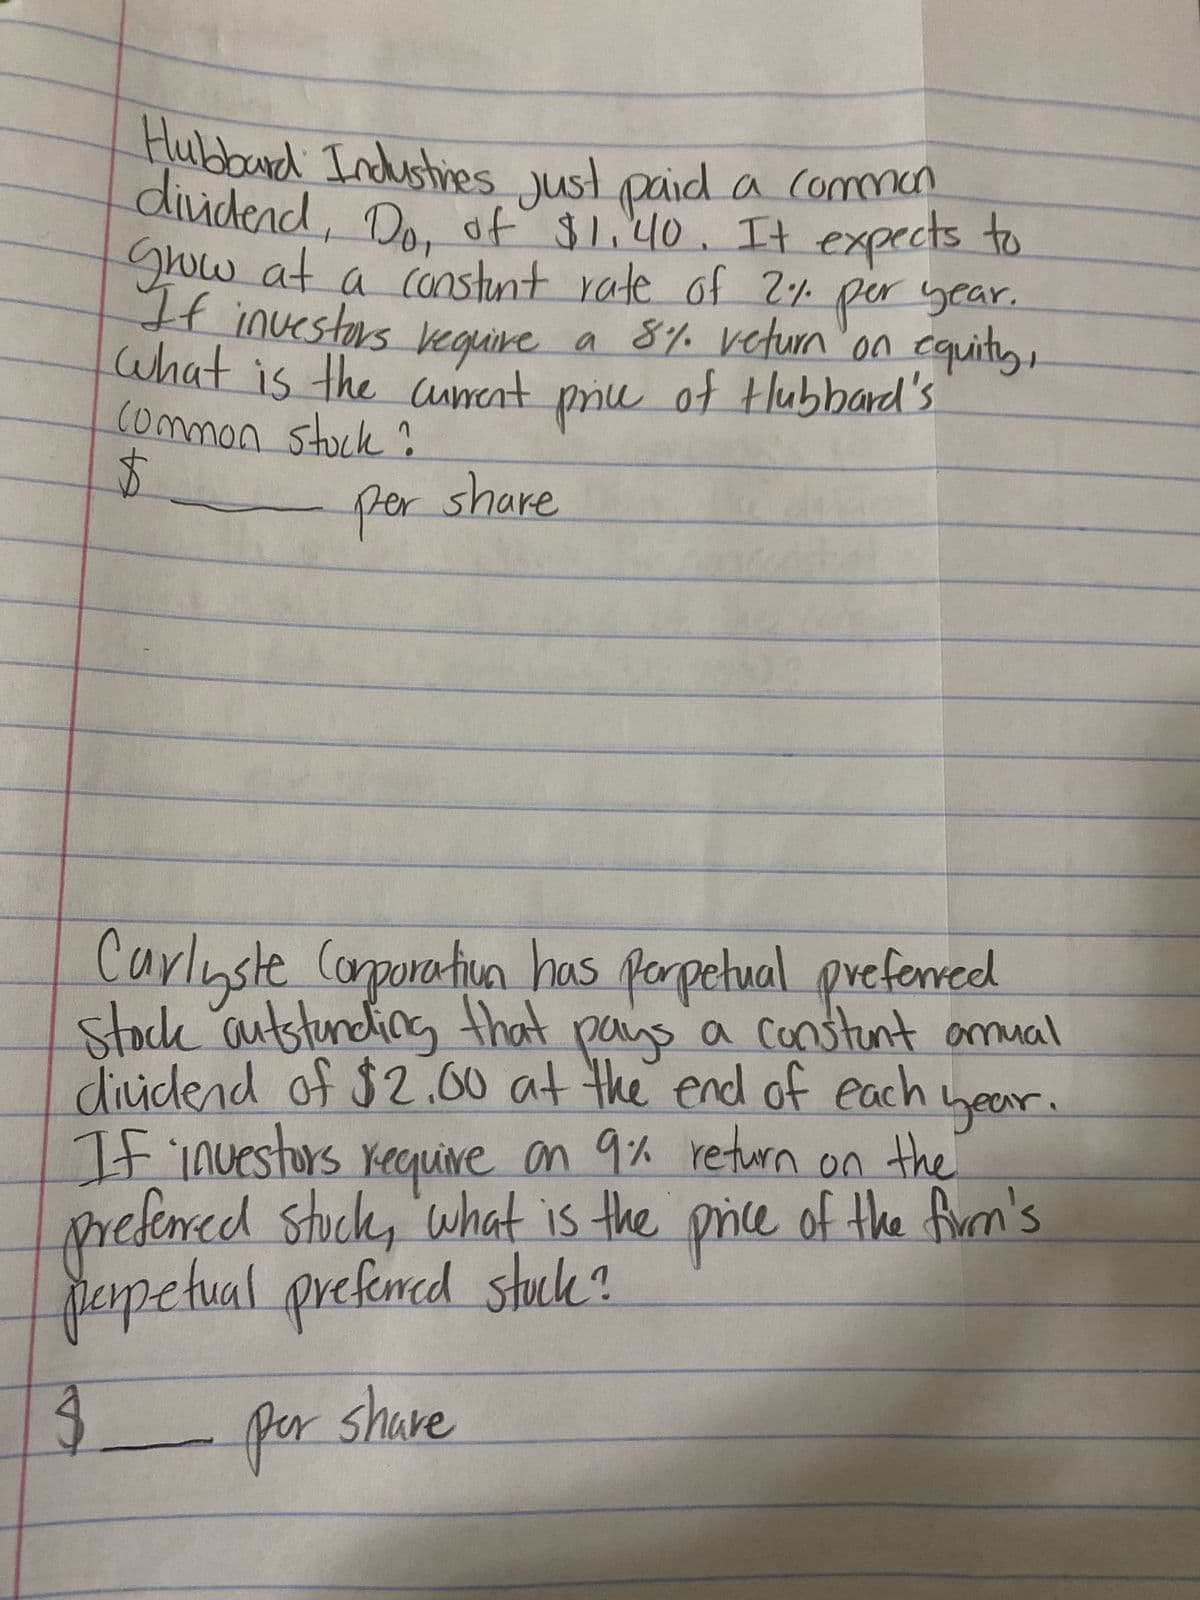 Hubbard Industries just paid a common
dividend, D0, of $1.40. It expects to
grow at a constant rate of 2% per year.
If investors require a 8% return on equity,
what is the current price of Hubbard's
common stock?
$ ____ per share
Carlyste Corporation has perpetual preferred
stock outstanding that pays a constant annual
dividend of $2.00 at the end of each year.
If investors require an 9% return on the
preferred stock, what is the price of the firm's
perpetual preferred stock?
$ ___ per share